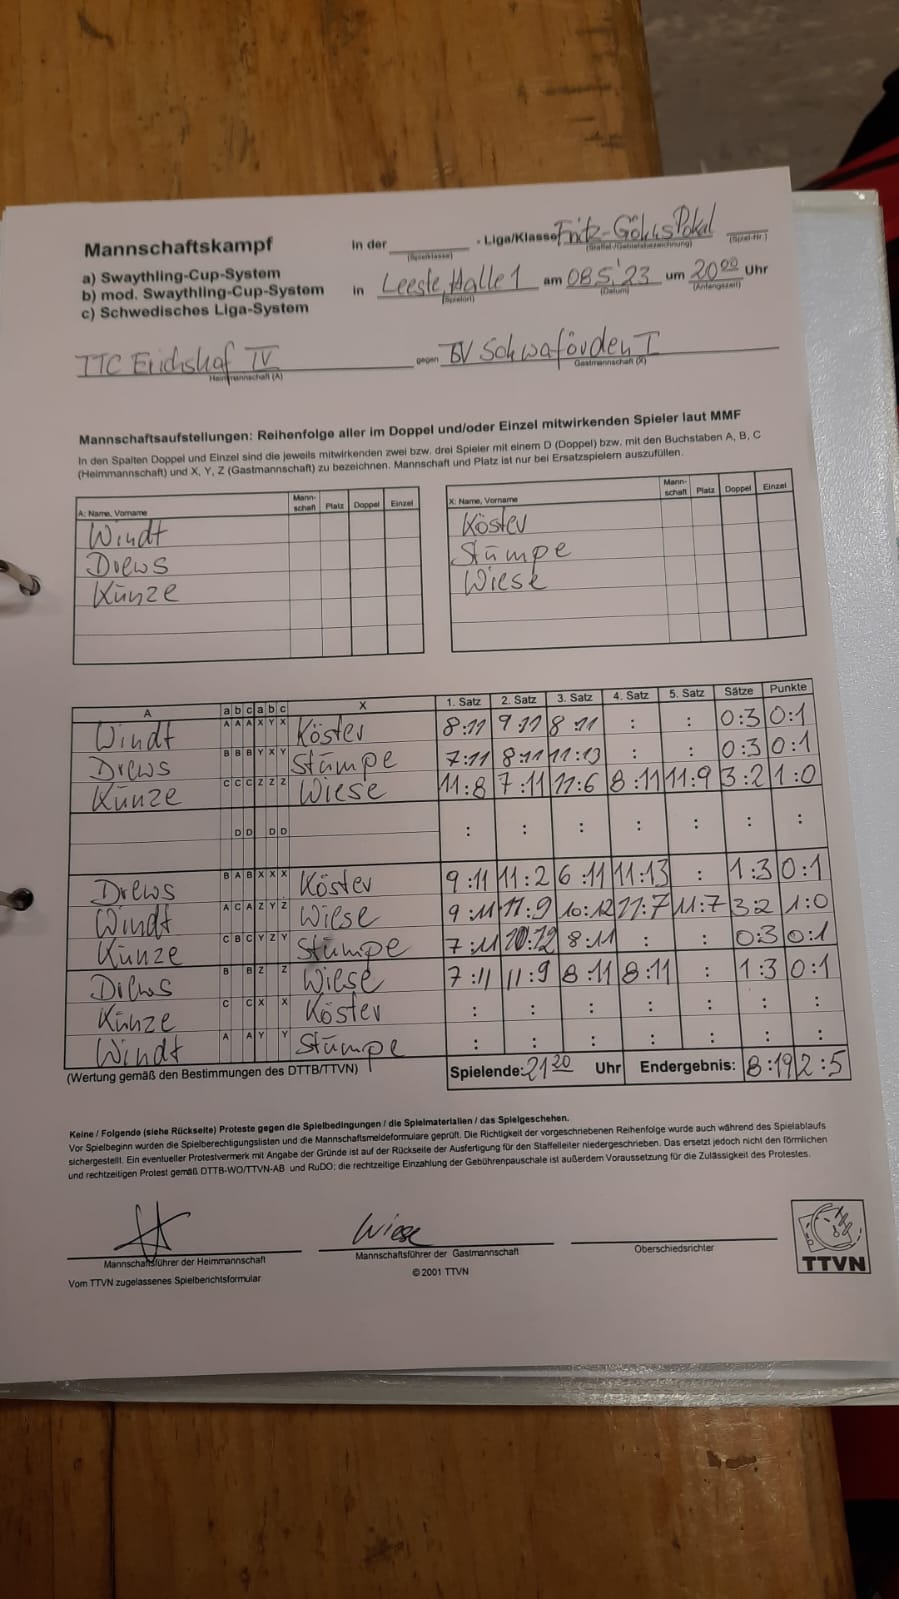 Mannschaftskampf
in der - Liga/Klasse Fritz-Göhls Pokal
(Spielklasse) (Staffel-/Gebietsbezeichnung) (Spiel-Nr.)
a) Swaythling-Cup-System
b) mod. Swaythling-Cup-System
c) Schwedisches Liga-System
in Leeste, Halle 1 am 08.5.'23 um 20 00 Uhr
(Spielort) (Datum) (Anfangszeit)
TTC Erichshof IV gegen TSV Schwaförden I
Heimmannschaft (A) Gastmannschaft (X)
Mannschaftsaufstellungen: Reihenfolge aller im Doppel und/oder Einzel mitwirkenden Spieler laut MMF
In den Spalten Doppel und Einzel sind die jeweils mitwirkenden zwei bzw. drei Spieler mit einem D (Doppel) bzw. mit den Buchstaben A, B, C
(Heimmannschaft) und X, Y, Z (Gastmannschaft) zu bezeichnen. Mannschaft und Platz ist nur bei Ersatzspielern auszufüllen.
A: Name, Vorname Mann-schaft Platz Doppel Einzel
Windt
Drews
Kunze
X: Name, Vorname Mann-schaft Platz Doppel Einzel
Köster
Stumpe
Wiese
A a b c a b c X 1. Satz 2. Satz 3. Satz 4. Satz 5. Satz Sätze Punkte
Windt A A A X Y X Köster 8:11 9:11 8:11 : : 0:3 0:1
Drews B B B Y X Y Stumpe 7:11 8:11 11:13 : : 0:3 0:1
Kunze C C C Z Z Z Wiese 11:8 7:11 11:6 8:11 11:9 3:2 1:0
D D D D : : : : : : :
Drews B A B X X X Köster 9:11 11:2 6:11 11:13 : 1:3 0:1
Windt A C A Z Y Z Wiese 9:11 11:9 10:12 11:7 11:7 3:2 1:0
Kunze C B C Y Z Y Stumpe 7:11 10:12 8:11 : : 0:3 0:1
Drews B B Z Z Wiese 7:11 11:9 8:11 8:11 : 1:3 0:1
Kunze C C X X Köster : : : : : : :
Windt A A Y Y Stumpe : : : : : : :
(Wertung gemäß den Bestimmungen des DTTB/TTVN) Spielende: 21 20 Uhr Endergebnis: 8:19 2:5
Keine / Folgende (siehe Rückseite) Proteste gegen die Spielbedingungen / die Spielmaterialien / das Spielgeschehen.
Vor Spielbeginn wurden die Spielberechtigungslisten und die Mannschaftsmeldeformulare geprüft. Die Richtigkeit der vorgeschriebenen Reihenfolge wurde auch während des Spielablaufs
sichergestellt. Ein eventueller Protestvermerk mit Angabe der Gründe ist auf der Rückseite der Ausfertigung für den Staffelleiter niedergeschrieben. Das ersetzt jedoch nicht den förmlichen
und rechtzeitigen Protest gemäß DTTB-WO/TTVN-AB und RuDO; die rechtzeitige Einzahlung der Gebührenpauschale ist außerdem Voraussetzung für die Zulässigkeit des Protestes.
Wiese
Mannschaftsführer der Heimmannschaft Mannschaftsführer der Gastmannschaft Oberschiedsrichter
Vom TTVN zugelassenes Spielberichtsformular © 2001 TTVN
TTVN